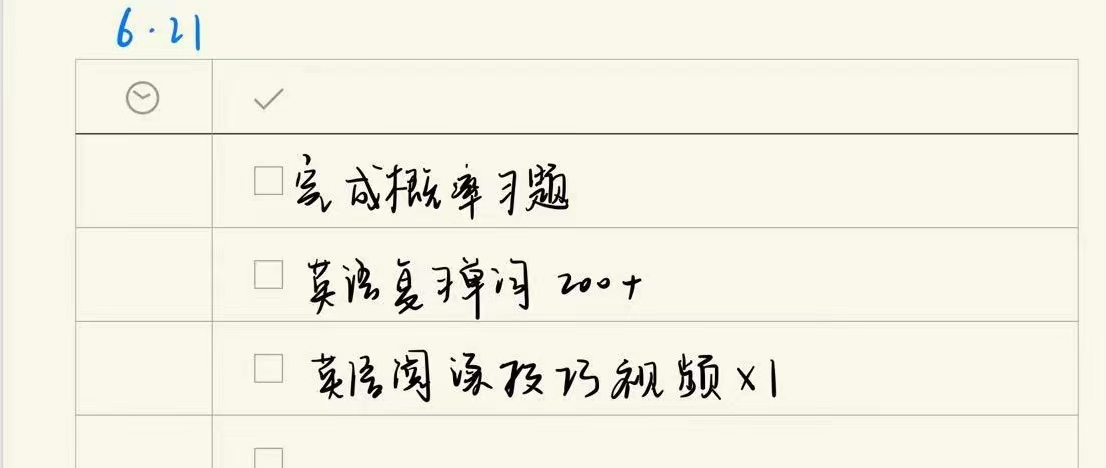 6.21
完成概率习题
英语复习单词 200+
英语阅读技巧视频×1